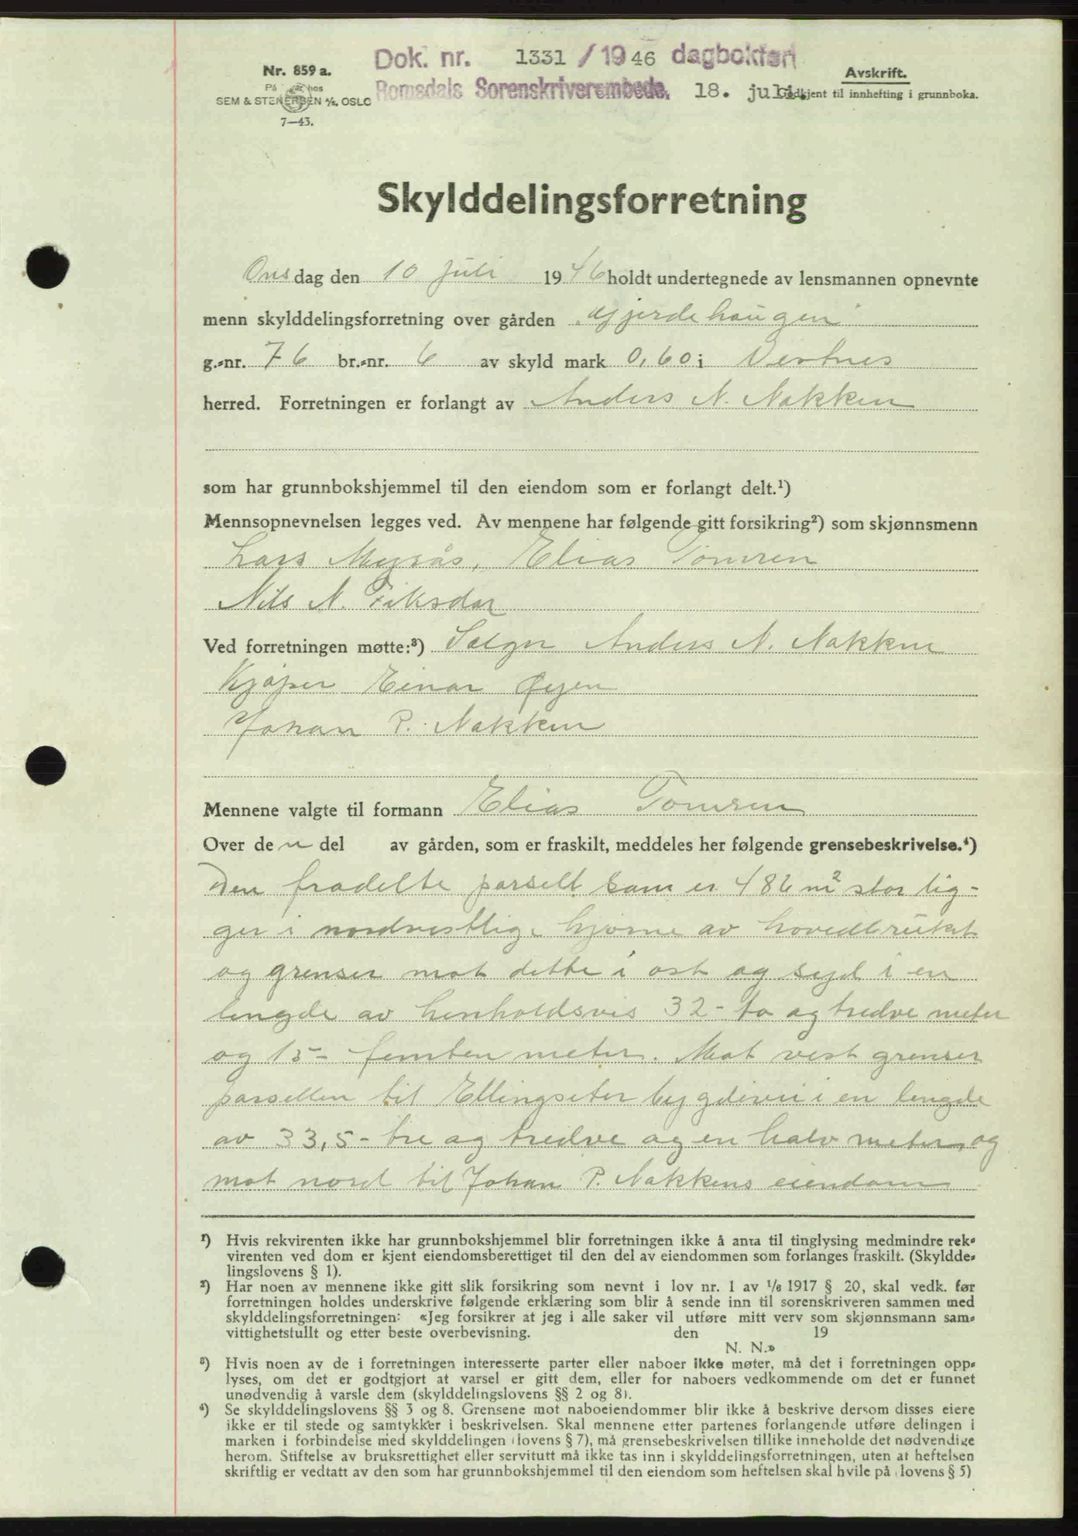 Dok. nr. 1331 /1946 dagboken
Romsdals Sorenskriverembede. 18. juli.
Nr. 859 a.
På lager hos
SEM & STENERSEN A/S, OSLO
7—43.
Avskrift.
Godkjent til innhefting i grunnboka.
Skylddelingsforretning
Onsdag den 10 juli 1946 holdt undertegnede av lensmannen opnevnte
menn skylddelingsforretning over gården Gjerdehaugen
g.-nr. 76 br.-nr. 6 av skyld mark 0,60 i Vestnes
herred. Forretningen er forlangt av Anders N. Nakken
som har grunnbokshjemmel til den eiendom som er forlangt delt.¹)
Mennsopnevnelsen legges ved. Av mennene har følgende gitt forsikring²) som skjønnsmenn
Lars Myrås, Elias Tomren
Nils N. Fiksdal
Ved forretningen møtte:³) Selger Anders N. Nakken
Kjøper Einar Øyen
Johan P. Nakken
Mennene valgte til formann Elias Tomren
Over den del av gården, som er fraskilt, meddeles her følgende grensebeskrivelse.⁴)
Den fradelte parsell som er 486 m² stor lig-
ger i nordvestlige hjørne av hovedbruket
og grenser mot dette i ost og syd i en
lengde av henholdsvis 32 - to og tredve meter
og 15 - femten meter. Mot vest grenser
parsellen til Ellingseter bygdevei i en lengde
av 33,5 - tre og tredve og en halv meter, og
mot nord til Johan P. Nakkens eiendom
¹) Hvis rekvirenten ikke har grunnbokshjemmel blir forretningen ikke å anta til tinglysing medmindre rek-
virenten ved dom er kjent eiendomsberettiget til den del av eiendommen som forlanges fraskilt. (Skyldde-
lingslovens § 1).
²) Har noen av mennene ikke gitt slik forsikring som nevnt i lov nr. 1 av ¹/₆ 1917 § 20, skal vedk. før
forretningen holdes underskrive følgende erklæring som blir å sende inn til sorenskriveren sammen med
skylddelingsforretningen: «Jeg forsikrer at jeg i alle saker vil utføre mitt verv som skjønnsmann sam-
vittighetsfullt og etter beste overbevisning. den 19
N. N.»
³) Hvis noen av de i forretningen interesserte parter eller naboer ikke møter, må det i forretningen opp-
lyses, om det er godtgjort at varsel er gitt dem, eller for naboers vedkommende om det er funnet
unødvendig å varsle dem (skylddelingslovens §§ 2 og 8).
⁴) Se skylddelingslovens §§ 3 og 8. Grensene mot naboeiendommer blir ikke å beskrive dersom disses eiere
ikke er til stede og samtykker i beskrivelsen. Skal mennene etter partenes forlangende utføre delingen i
marken i forbindelse med skylddelingen (lovens § 7), må grensebeskrivelsen tillike inneholde det nødvendige
herom. Stiftelse av bruksrettighet eller servitutt må ikke tas inn i skylddelingsforretningen, uten at heftelsen
skriftlig er vedtatt av den som har grunnbokshjemmel til den eiendom som heftelsen skal hvile på (lovens § 5)